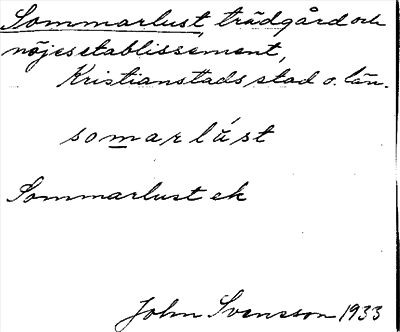 Sommarlust, trädgård och
nöjesetablissement,
Kristianstads stad o. län.
somarlúst
Sommarlust ek
John Svensson 1933